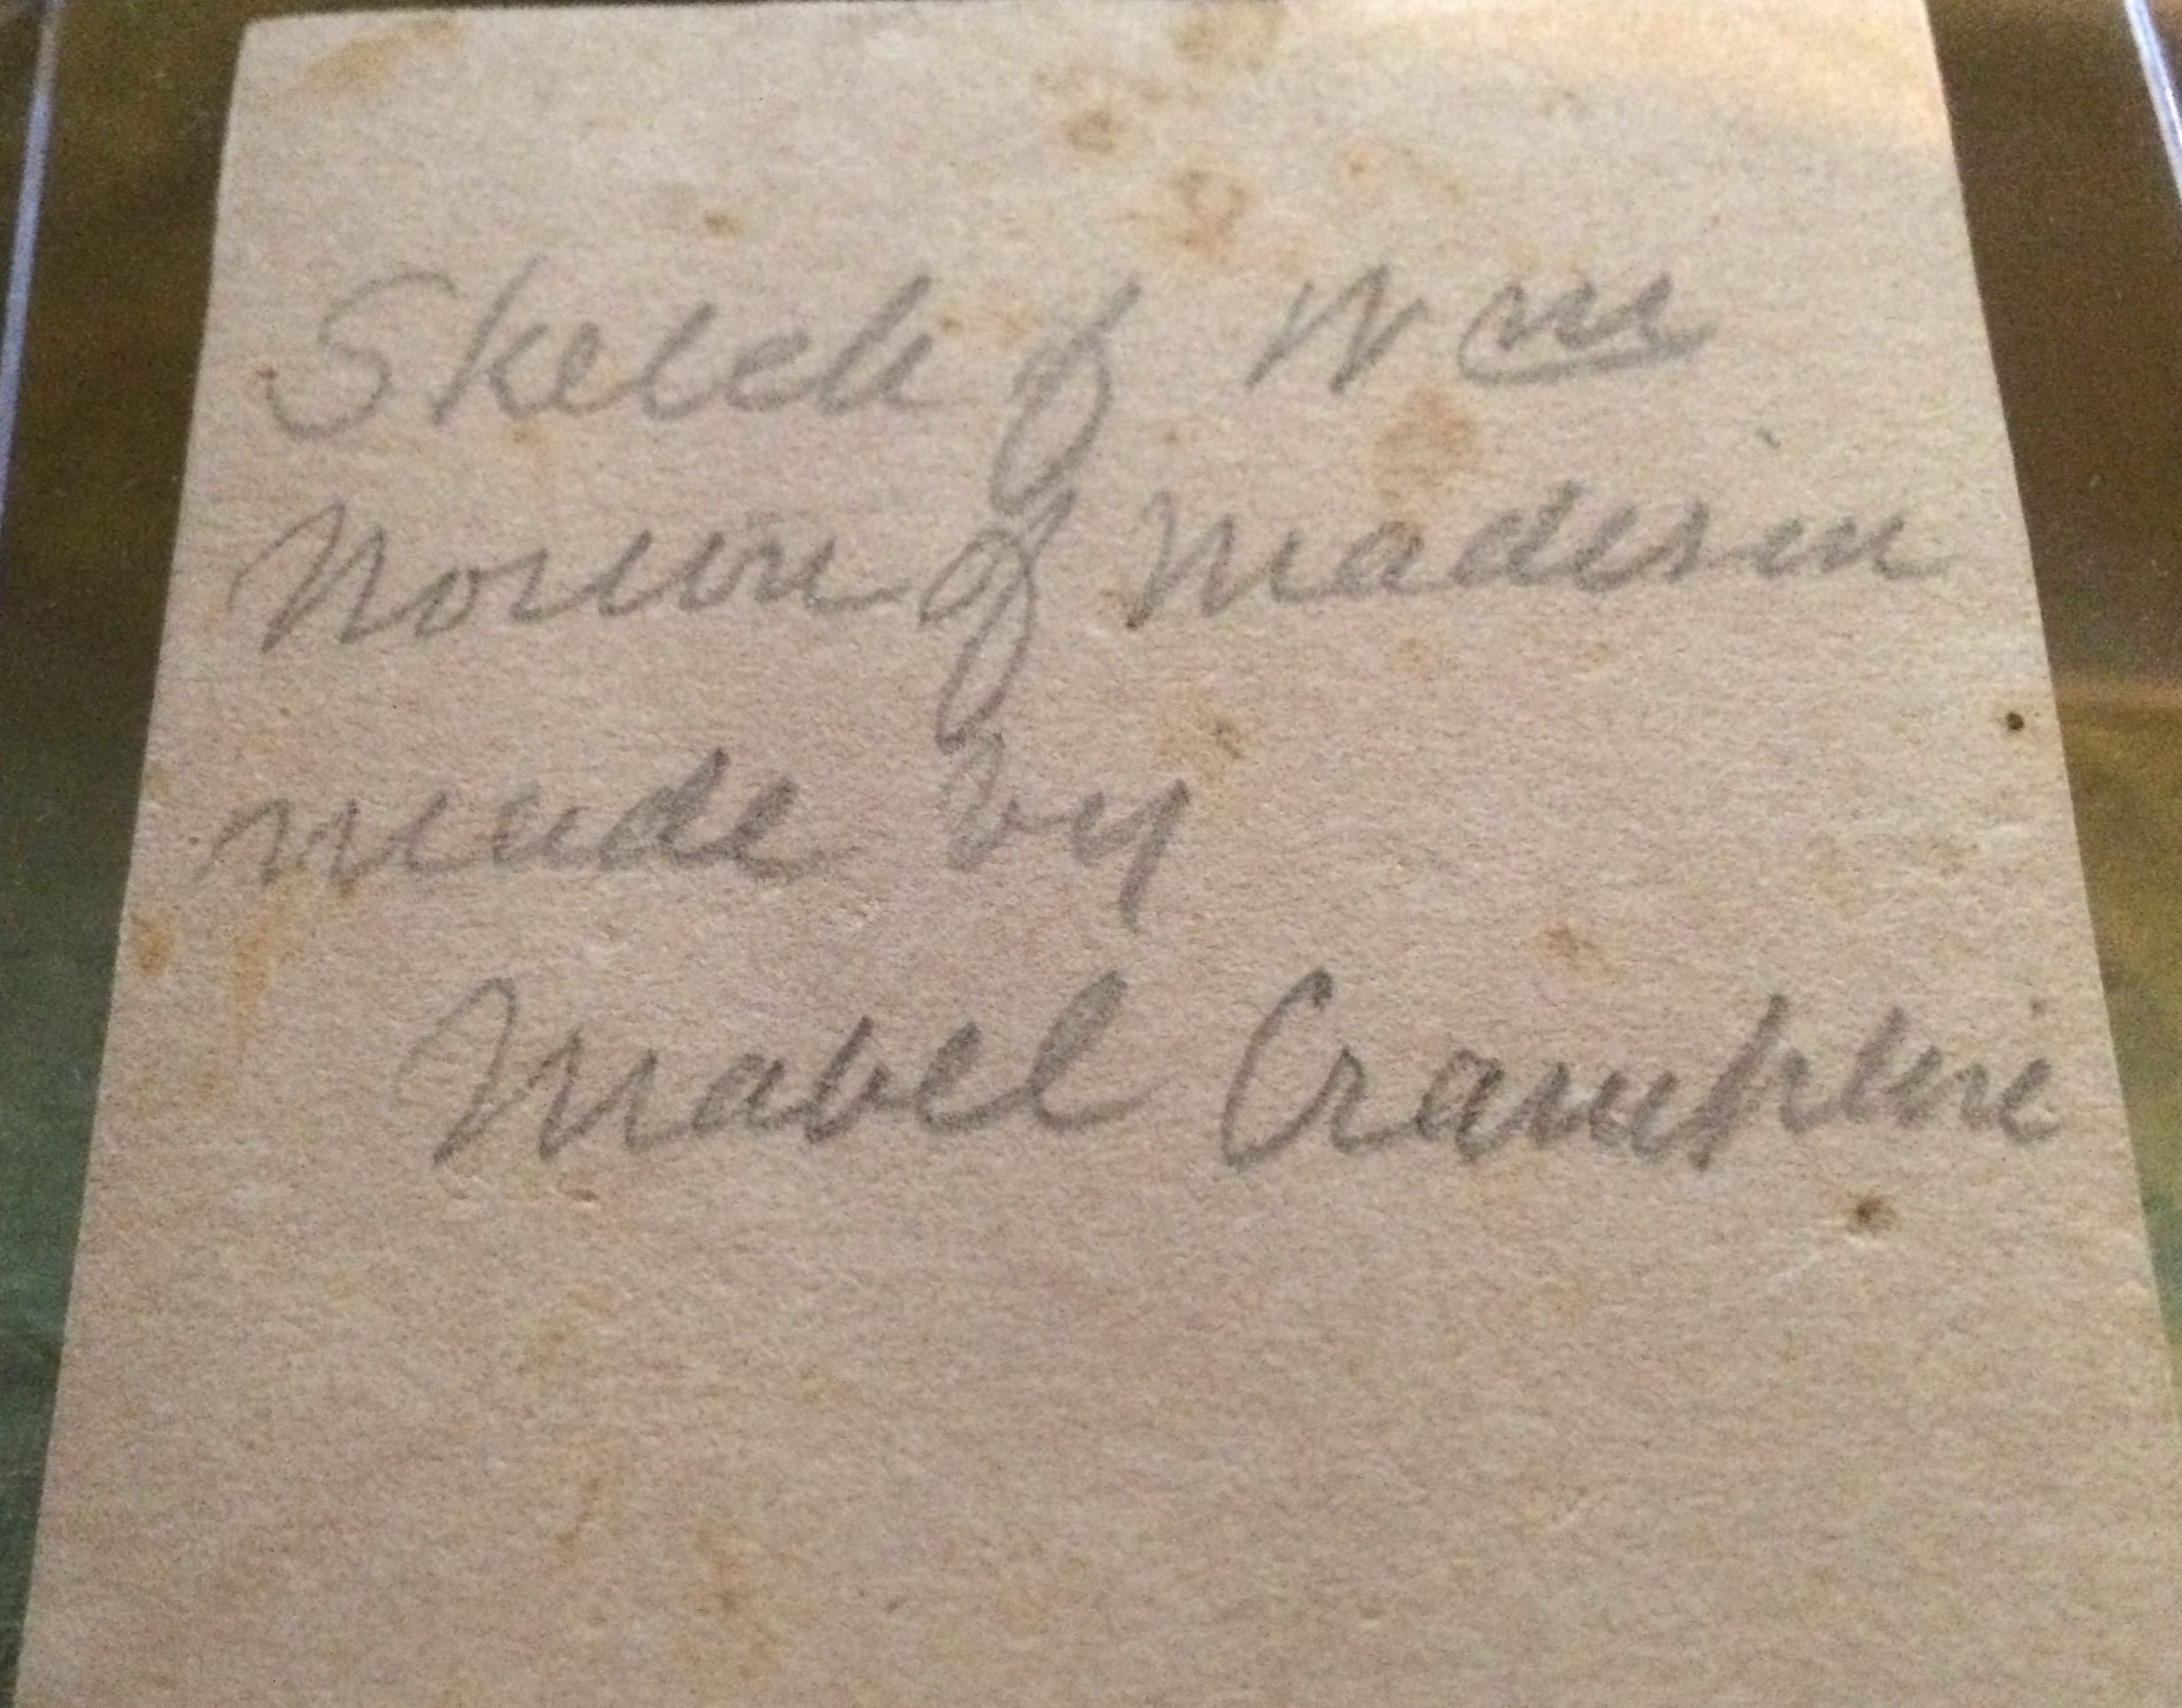 Sketch of Wm
Norton of Madison
made by
Mabel Crampton